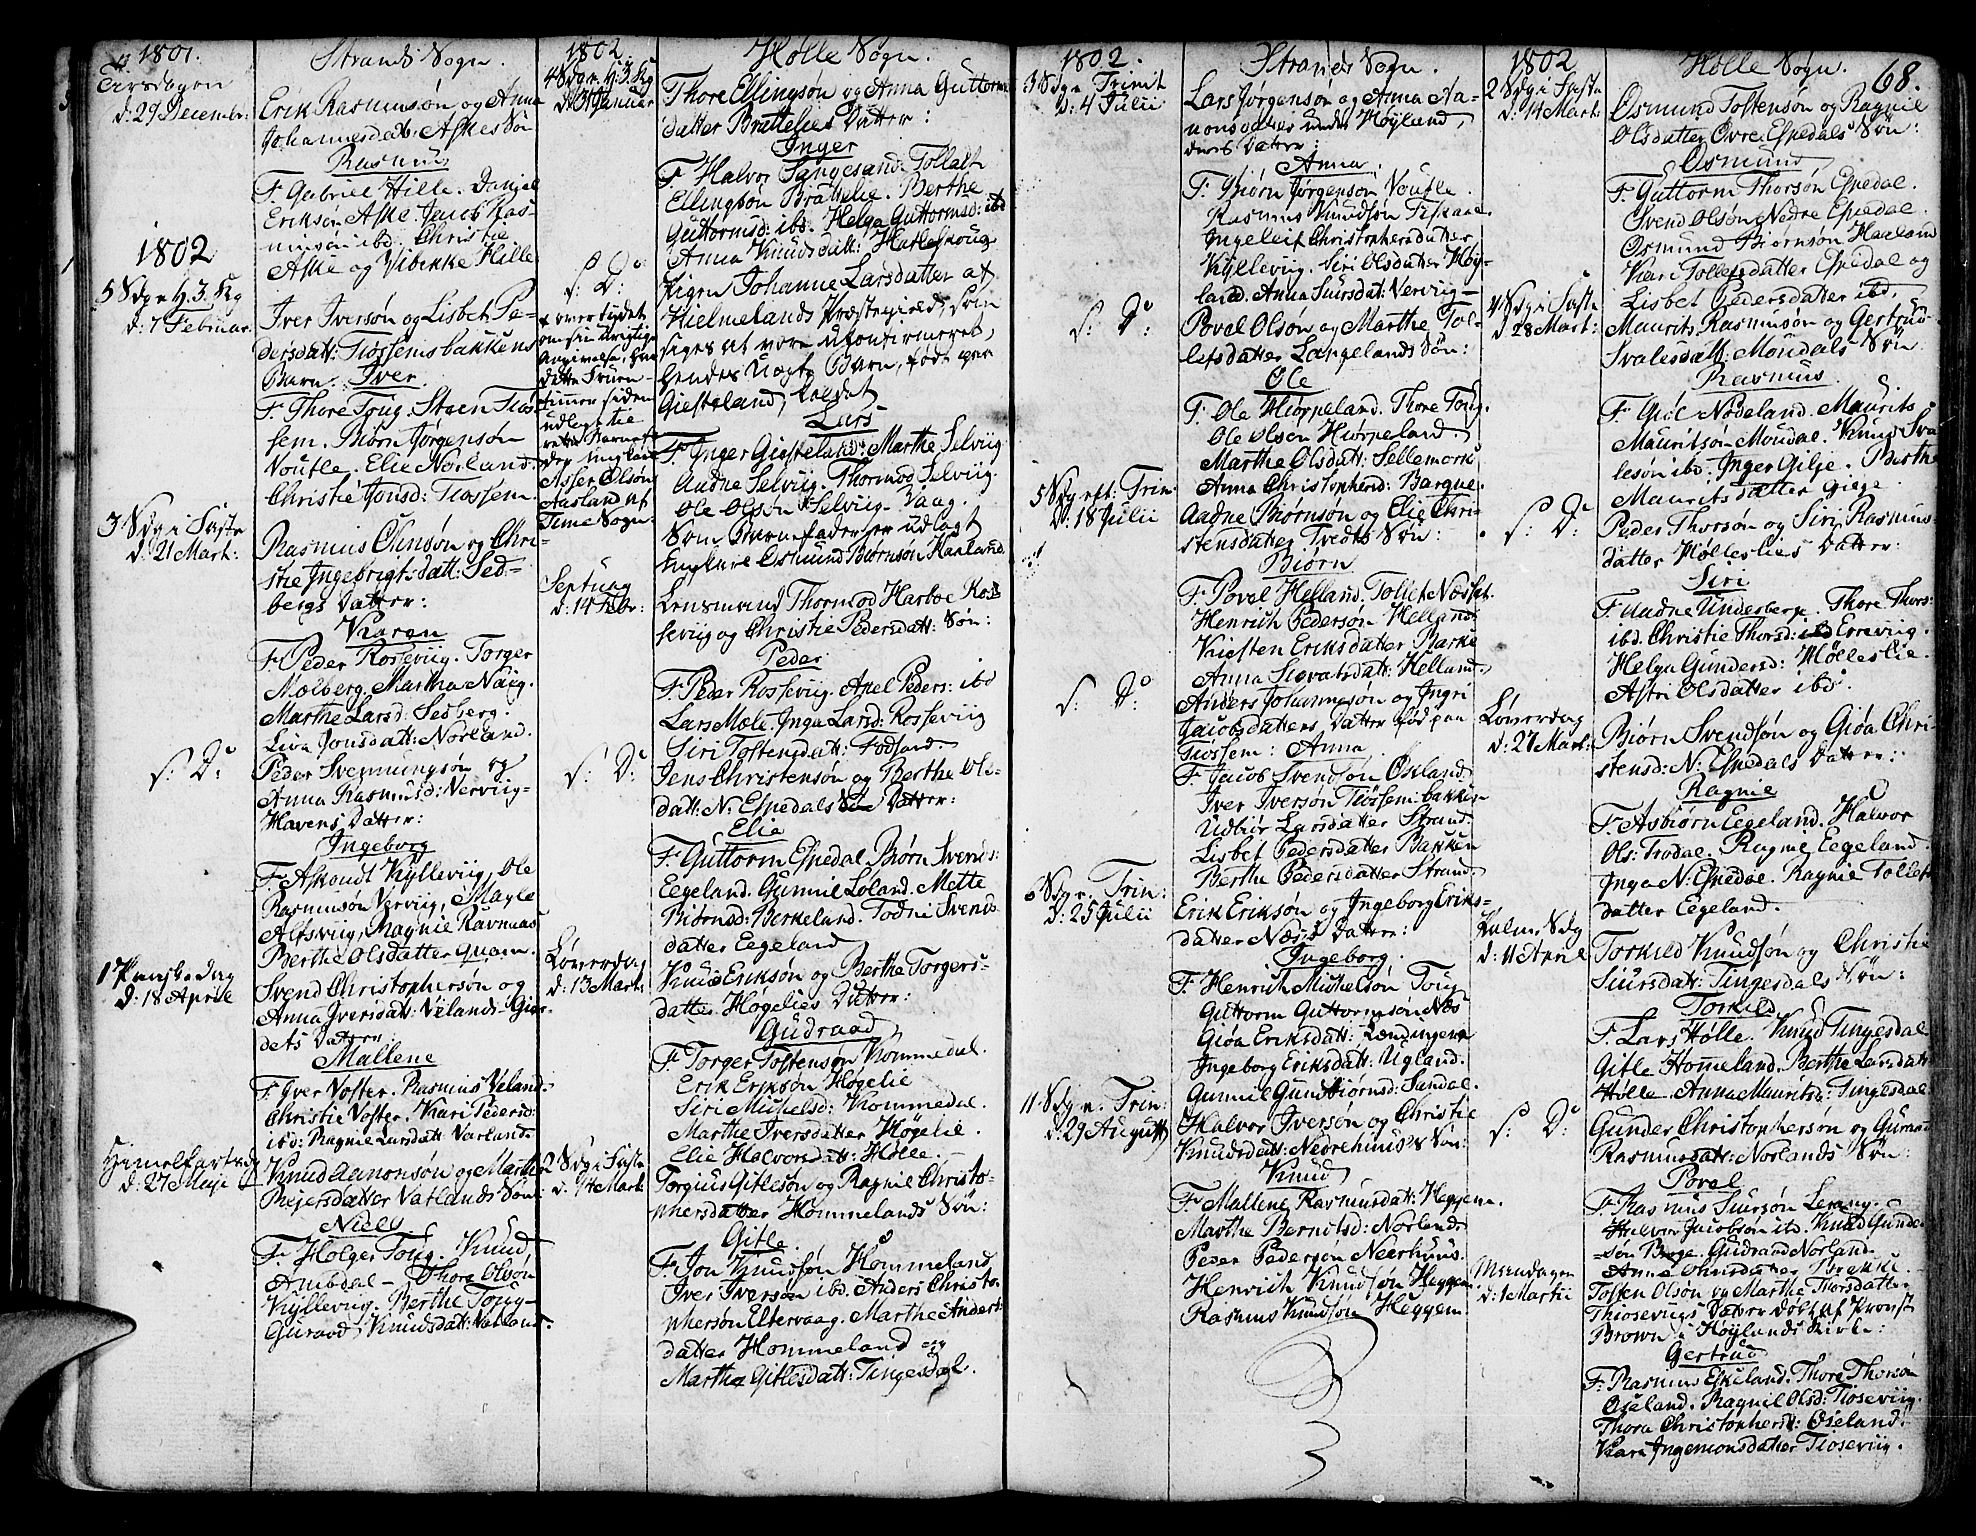 1801.
Strands Sogn.
d: 29 Decembr:
Erik Rasmusøn og Anna
Johannesdatt: Askes Søn
Rasmus
F. Gabriel Hille. Daniel
Erikson Aske. Jacob Ras-
musøn ibd. Christie
Aske og Vibekke Hille
1802
5 Sdg. e. H. 3. Kg
d: 7 Februar.
Iver Iversøn og Lisbet Pe-
dersdatt: Tiøssems bakkens
Barn. Iver.
F. Thore Toug. Steen Tiøs-
sem. Biørn Jørgensøn
Voutle. Elie Norland.
Christie Jonsd: Tiøssem.
3 Sdg i Faste
d. 21 Mart:
Rasmus Olusøn og Chri-
stie Ingebrigtsdatt: Sed-
bergs Datter:
Karen
F. Peder Rosseviig. Torger
Molberg. Martha Någ.
Marthe Larsd: Sedberg.
Liva Jonsdatt: Norland.
s: D:
Peder Svennungsøn og
Anna Rasmusd: Nerviig-
Havens Datter:
Ingeborg
F. Askoudt Kylleviig, Ole
Rasmusøn Nerviig, Magle
Alfsviig, Magnie Ravnaas
Berthe Olsdatter Quam.
1 Paaskedag
d: 18 Aprile
Svend Christophersøn og
Anna Iversdatt: Vélands-Gier-
dets Datter:
Mallene
F. Iver Voster. Rasmus Veland-
Christie Voster. Kari Pedersd:
ibd: Ragnie Larsdatt: Varland.
Himelfartsdg
d: 27 Maje
Knud Aanonsøn og Marthe
Reiersdatter Vatlands Søn:
Niels
F. Holger Toug. Knud
Ambdal- Thore Olsøn
Kylleviig. Berthe Toug-
Guraad Knudsdatt: Vatland.
1802.
Holle Sogn.
4 Sdg. e. H. 3. Kg
d. 31 Januar
Thore Ellingsøn og Anna Guttorms
datter Brattelies Datter:
Inger
F. Halvor Langesand. Tollak
Ellingsøn Brattelie. Berthe
Guttormsd: ibd. Helga Guttormsd: ibd
Anna Knudsdatt:
s: D:
Pigen Johanne Larsdatter af
Hielmelands Præstegield, som
siges at være uconfirmeret,
hendes Uægte Barn, født paa
Giesteland, kaldet
Lars
F. Inger Giesteland. Marthe Selviig
Aadne Selviig. Thormod Selviig
Ole Olsøn Selviig- Vaag.
Som Barnefader er udlagt
Unge Karl Osmund Biørnsøn Haaland.
overtydet
om sin urigtige
Angivelse, har
dette Fruen-
timer siden
udlagt til
rette Barnefa-
der ungkarl
Asser Olsøn
Aasland af
Time Sogn:
Septuag
d: 14 Febr:
Lensmand Thormod Harboe Ros-
seviig og Christie Pedersdatt: Søn:
Peder
F. Peder Rosseviig. Apel Peders: ibd
Lars Mæle. Inga Larsd: Rosseviig
Siri Tostensdatt: Fodland.
s: D:
Jens Christensøn og Berthe Ols-
datt: N. Espedals Datter:
Elie
F. Guttorm Espedal. Biørn Svends:
Eegeland. Gunnil Løland. Mette
Biørnsd: Berkeland. Todni Svends
datter Eegeland
Løverdag
d: 13 Mart:
Knud Eriksøn og Berthe Torgers-
datter Høgelies Datter:
Gudraad
F. Torger Tostensøn Kommedal.
Erik Eriksøn Høgelie
Siri Michelsd: Kommedal.
Marthe Iversdatter Høgelie.
Elie Halvorsdatt: Hølle.
2 Sdg i Faste
d. 14 Mart.
Torgius Gitlesøn og Ragnil Christo-
phersdatter Hommelands Søn:
Gitle.
F. Jon Knudsøn Hommeland
Iver Iversøn ibd. Anders Christo-
phersøn Eltervaag. Marthe Anders-
datter Hommeland og
Martha Gitlesdatt: Tingesdal.
1802.
Strands Sogn.
3 Sdg. e. Trinit
d: 4 Julii
Lars Jørgensøn og Anna Aa-
nonsdatter under Høyland,
deres Datter:
Anna.
F. Biørn Jørgensøn Voutle.
Rasmus Knudsøn Fiskaae.
Ingeleif Christophersdatter
Kylleviig. Siri Olsdatter Høy-
land. Anna Siursdat: Nerviig-
s. D:
Povel Olsøn og Marthe Tol-
lefsdatter Langelands Søn:
Ole
F. Ole Hiørpeland. Thore Toug.
Ole Olsen Hiørpeland.
Marthe Olsdatt: Tellemork
Anna Christophersd: Barque.
5 Sdg eft: Trin:
D: 18 Julii
Aadne Biørnsøn og Elie Chri-
stensdatter Tvedts Søn:
Biørn
F. Povel Helland. Tollef Næsset.
Henrich Pedersøn Helland
Kiesten Eriksdatter Barke
Anna Sievatsdatt: Helland.
s. D:
Anders Johannesøn og Ingri
Jacobsdatters Datter fød paa
Tiøssem: Anna.
F. Jacob Svendsøn Oseland
Iver Iversøn Tiøssemsbakken
Udbiør Larsdatter Strand.
Lisbet Pedersdatter Bakken
Berthe Pedersdatter Strand.
6 Sdg. e. Trin:
d: 25 Julii
Erik Eriksøn og Ingeborg Eriks-
datter Næss Datter:
Ingeborg.
F. Henrich Michelsøn Toug
Guttorm Guttormsøn Næs
Giøa Eriksdatt:
Ingeborg Eriksdatt: Ugland.
Gunnil Gundbiørnsd: Sandal.
11 Sdg. e. Trin:
d: 29 Augusti
Halvor Iversøn og Christie
Knudsdatt: Nedrehuus's Søn:
Knud
F. Mallene Rasmusdatt: Heggem.
Marthe Berntsd: Norland
Peder Pedersen Neerhuus.
Henrich Knudsøn Heggem
Rasmus Knudsøn Heggem.
1802
Hølle Sogn.
68.
2 Sdg i Faste
d. 14 Mart:
Osmund Tostensøn og Ragnil
Olsdatter Øvre Espedals Søn:
Osmund
F. Guttorm Thorsøn Espedal.
Svend Olsøn Nedre Espedal.
Osmund Biørnsøn Haaland
Kari Tollefsdatter Espedal og
Lisbet Pedersdatter ibd,
4 Sdg i Faste
d: 28 Mart:
Maurits Rasmusøn og Gertrud
Svalesdatt: Moudals Søn
Rasmus
F. Giøl Nodeland. Maurits
Mauritsøn Moudal. Knud Sva-
lesøn ibd. Inger Gilje. Berthe
Mauritsdatter Giege.
s: D:
Peder Thorsøn og Siri Rasmus-
datter Hølleslies Datter:
Siri
F. Aadne Underberge. Thore Thors:
ibd. Christie Thorsd: Erreviig.
Helga Gundersd: Hølleslie.
Astri Olsdatter ibd.
Løverdag
d: 27 Mart:
Biørn Svendsøn og Giøa Chri-
stensd: N: Espedals Datter:
Ragnie
F. Asbiørn Eegeland. Halvor
Ols: Trodal. Ragnie Eegeland.
Inga N: Espedal. Ragnie Tollefs
datter Eegeland.
Palme Sdg
d: 11 Aprile
Torkild Knudsøn og Christie
Siursdatt: Tingesdals Søn:
Torkild
F. Lars Hølle. Knud Tingesdal
Gitle Homeland. Berthe Larsdatt:
Hølle. Anna Mauritsd: Tingesdal
s: D:
Gunder Christophersøn og Gunnil
Rasmusdatt: Norlands Søn:
Povel
F. Rasmus Siursøn Lerang.
Halvor Jacobsøn ibd. Knud Gunder-
søn Berge. Gudrand Norland
Anne Olsdatter Brække.
Mandagen
d: 1 Martii
Tosten Olsøn og Marthe Thorsdatter
Thiosevigs Datter døbt af Provst
Brown i Høylands Kirke:
Gertrud
F. Rasmus Eskeland. Thore Thorsøn
Oseland. Ragnil Olsd: Tioseviig.
Thora Christophersd: Oseland.
Kari Ingemonsdatter Tioseviig.